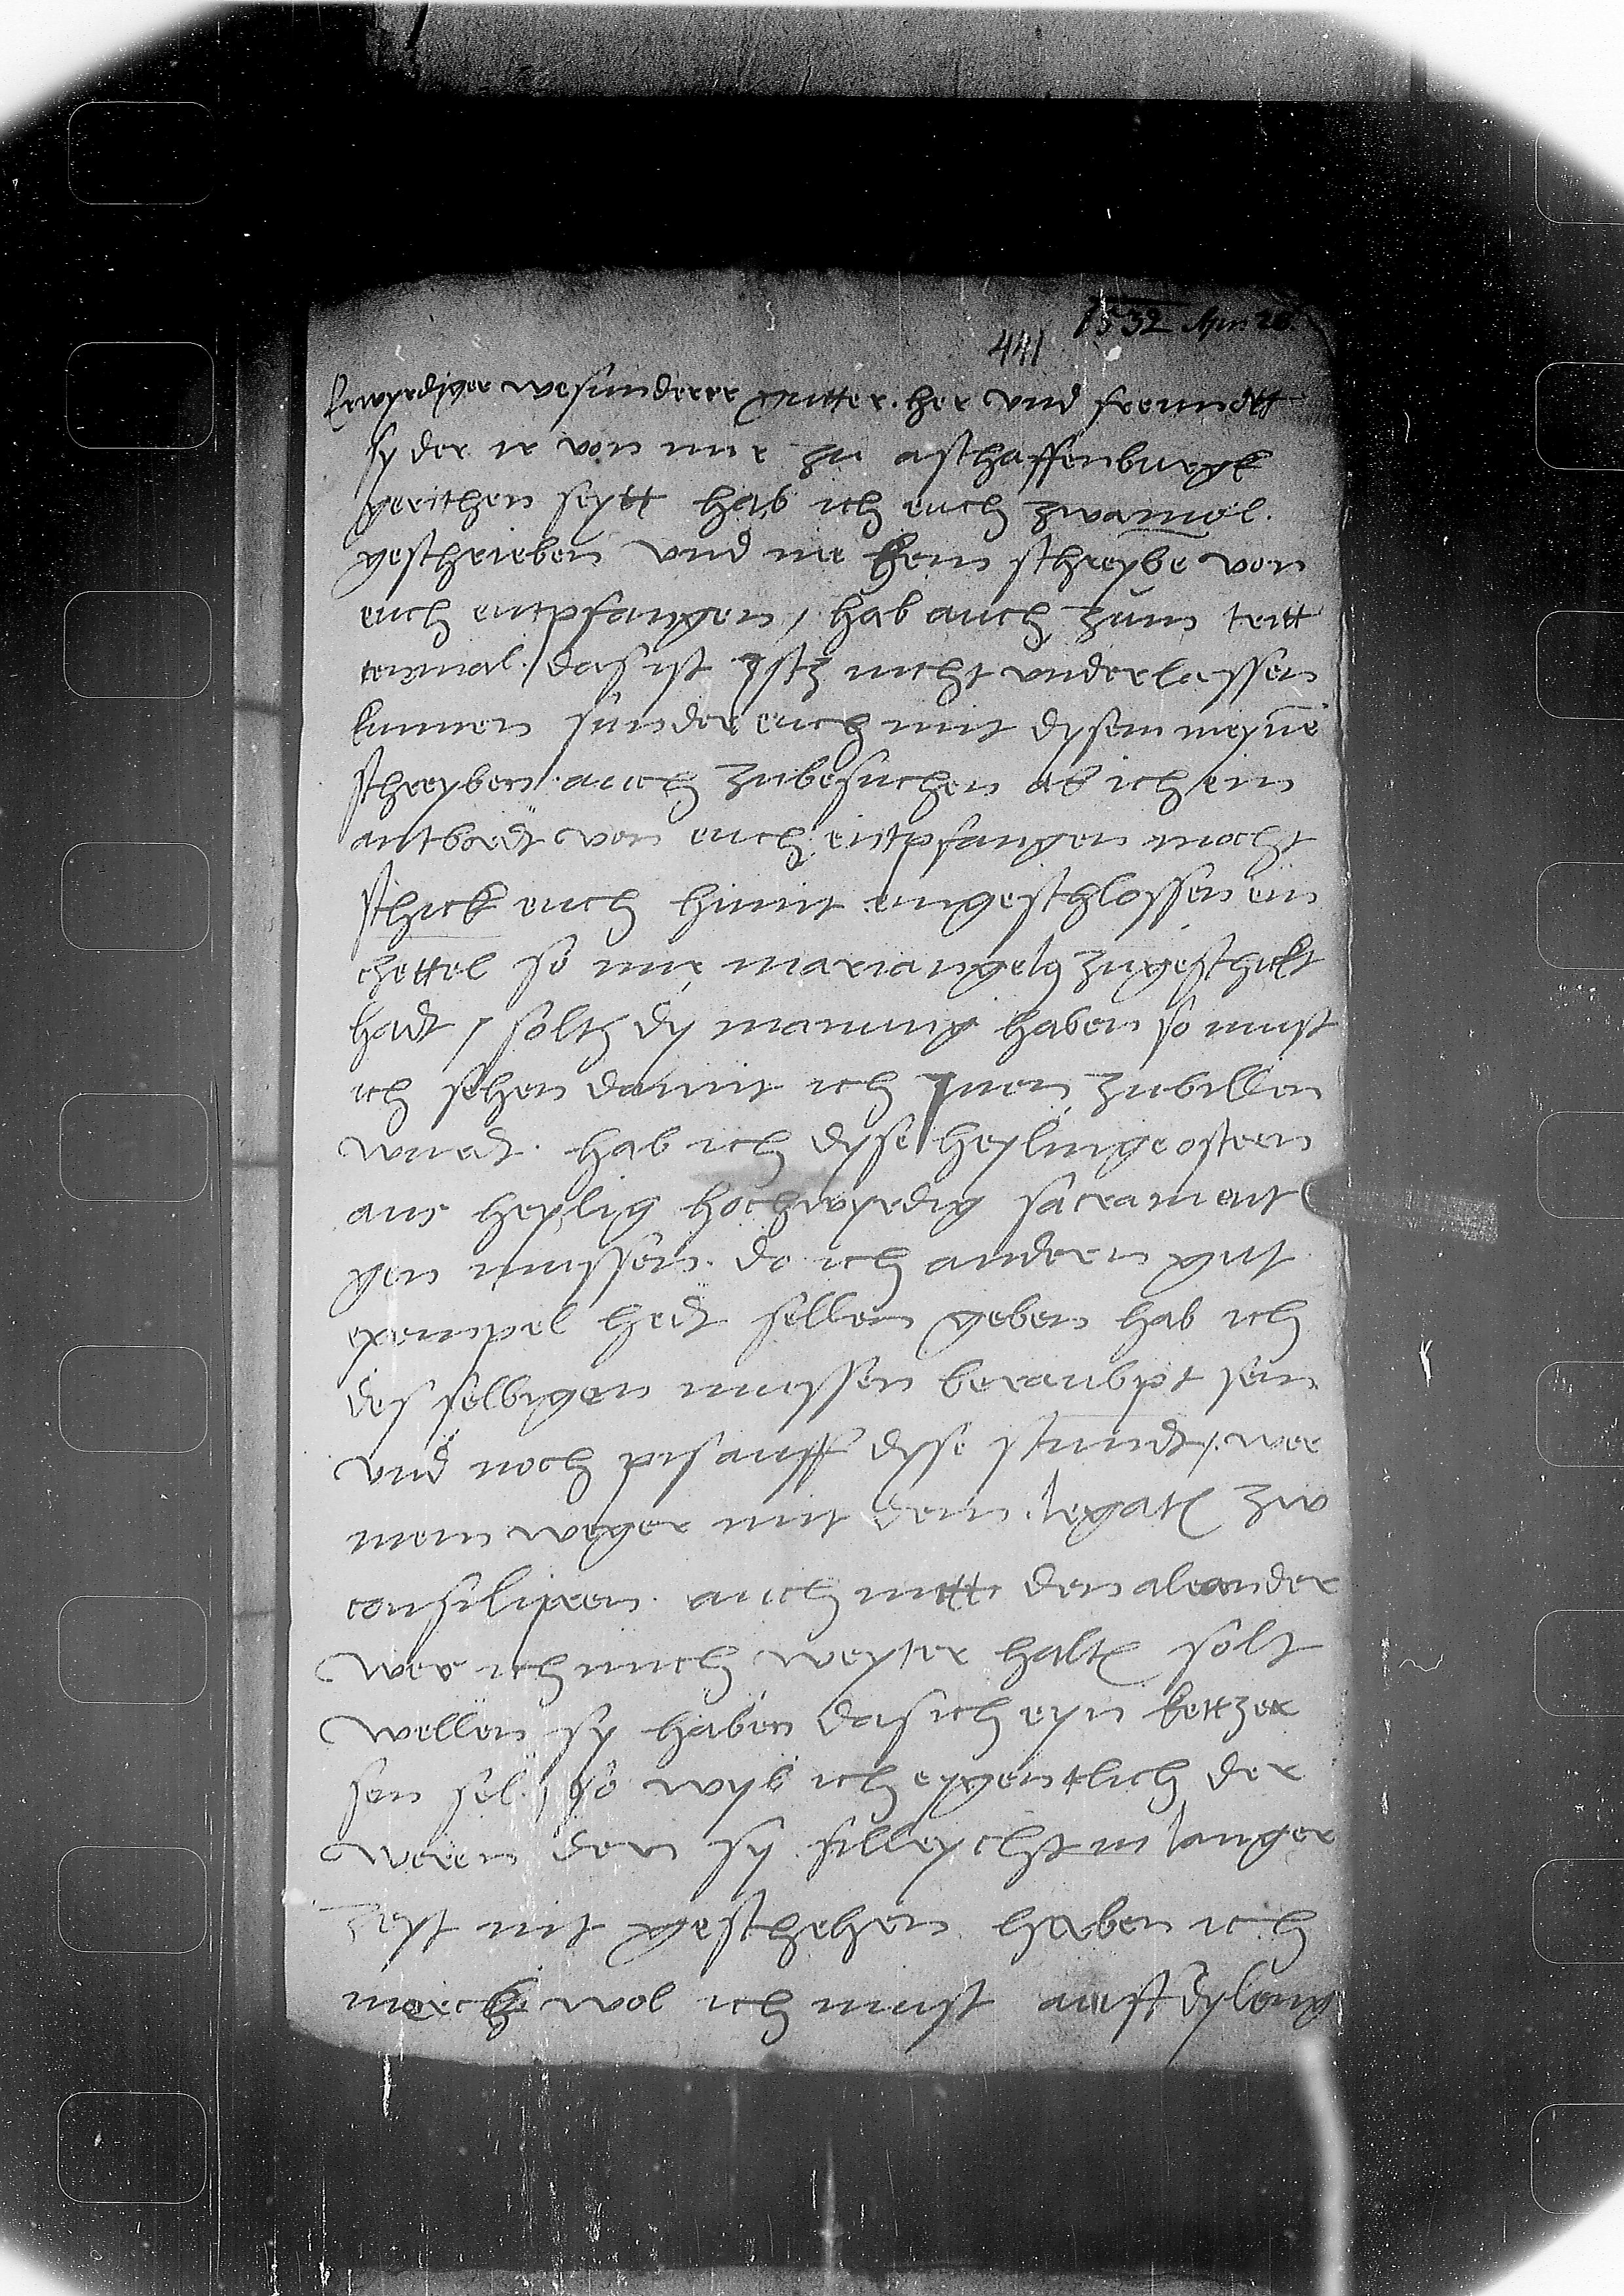 1532 Apr. 28.
441
Erwyrdiger wesunderer gutter her und freundtt
syder ir von mir zu aschaffenburgk
gerithen seytt hab ich euch zwamol.
geschrieben und nie kein schreybe von
euch entpfangen / hab auch zum tritt
tenmal / das ist istz nicht underlassen
kunnen sunder euch mit dysem meyne
schreyben auch zubesuchen ob ich ein
antbordt von euch entpfangen mocht
schick euch himit eingeschlossen ein
chettel so mir mariangelus zugeschickt
hadt / solch dy manung haben so must
ich sehen damit ich inen zubillen
wurdt. hab ich dyse heylinge ostern
ans heylig hochwyrdig sacrament
gen mussen. do ich andern gut
exempel hedt sollen geben hab ich
des selbigen mussen beraubpt sein
und noch pis auff dyse stundt / wer
mein weger mit dem legat zw
consiliren auch mitt dem aleander
wer ich mich weyter halt solt
wellen sy haben das ich eyn kettzer
sen sol / so wyl ich eygentlich der
weren den sy filleycht in langer
zeyt nit geschehen haben ich
merck wol ich must auff dy leng